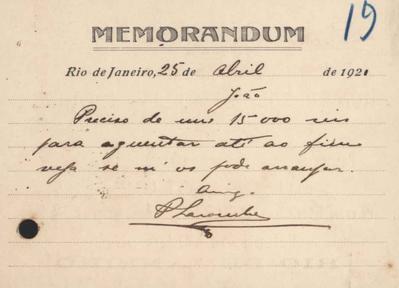 MEMORANDUM
19
Rio de Janeiro, 25 de Abril de 1921
João
Preciso de uns 15.000 reis
para aguentar até ao fim
veja se m'os pode arranjar.
Amº